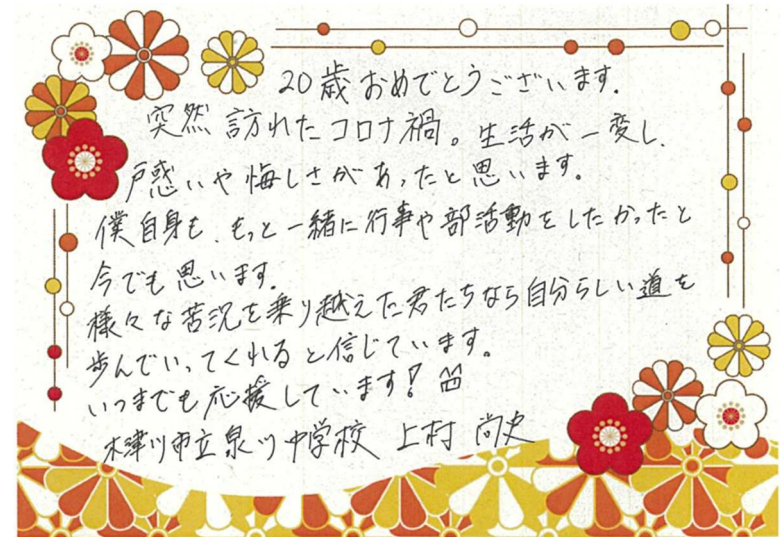 20歳おめでとうございます.
突然訪れたコロナ禍。生活が一変し、
戸惑いや悔しさがあったと思います。
僕自身も、もっと一緒に行事や部活動をしたかったと
今でも思います.
様々な苦況を乗り越えた君たちなら自分らしい道を
歩んでいってくれると信じています。
いつまでも応援しています!
木津川市立泉川中学校 上村 尚史